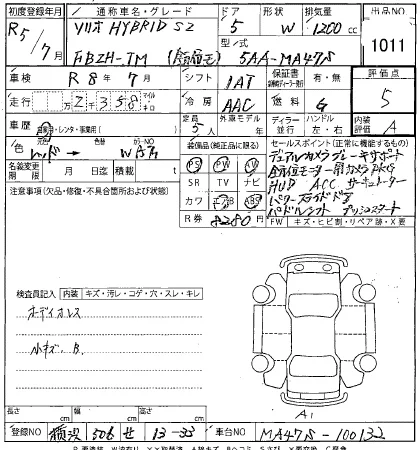 初度登録年月 通称車名・グレード ドア 形状 排気量 出品NO
R5/7月 ソリオ HYBRID SZ 5 W 1200cc 1011
型/式
5AA-MA47S
車検 R8年7月 シフト IAT 保証書 有・無 評価点
走行 万 2千358 マイル キロ 冷房 AAC 燃料 G 5
車歴 自家用・レンタ・事業用( ) 定員 5人 外車モデル 年 ディーラー 並行 ハンドル 左・右 内装 A
色 レッド → カラーNO WA7 装備品(純正品に限る) セールスポイント(正常に機能するもの)
名義変更期限 月 日迄 積載 t PS PW AW デュアルカメラブレーキサポート
注意事項(欠品・修復・不具合箇所および状態) SR TV ナビ 全方位モニター用カメラPKG
HUD ACC サーキュレーター
カワ エアB ABS パワースライドドア
R券 8280円 パドルシフト プッシュスタート
FW キズ・ヒビ割・リペア跡・X要
検査員記入 内装 キズ・汚レ・コゲ・穴・スレ・キレ
オーディオレス
小キズ. B.
A1
長さ cm 幅 cm 高さ cm
登録NO 横浜 506 せ 13-33 車台NO MA47S-100132